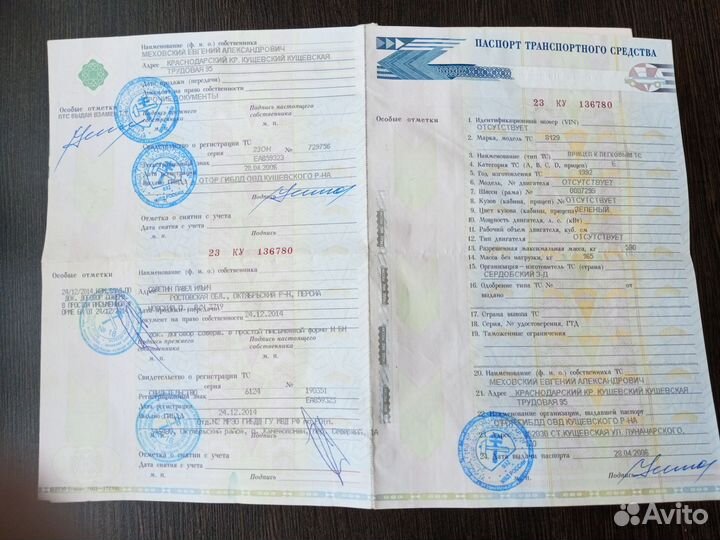 Наименование (ф. и. о.) собственника
МЕХОВСКИЙ ЕВГЕНИЙ АЛЕКСАНДРОВИЧ
Адрес КРАСНОДАРСКИЙ КР. КУЩЕВСКИЙ КУЩЕВСКАЯ
ТРУДОВАЯ 95
Дата продажи (передачи)
Документ на право собственности
ПРОЧИЕ ДОКУМЕНТЫ
Особые отметки
ПТС ВЫДАН ВЗАМЕН
Подпись прежнего собственника
Подпись настоящего собственника
м. п.
Свидетельство о регистрации ТС
серия 23ОН № 729756
Регистрационный знак ЕА859323
Дата регистрации 28.04.2006
Выдано ГИБДД ОТОР ГИБДД ОВД КУЩЕВСКОГО Р-НА
м. п. Подпись
Отметка о снятии с учета
Дата снятия с учета
м. п. Подпись
23 КУ 136780
Особые отметки
Наименование (ф. и. о.) собственника
ПАВЕЛ ИЛЬИЧ
Адрес РОСТОВСКАЯ ОБЛ., ОКТЯБРЬСКИЙ Р-Н,
24/12/2014
ДОК. ДОГОВОР СОВЕРШ.
В ПРОСТОЙ ПИСЬМЕННОЙ
24.12.2014
Дата продажи (передачи)
Документ на право собственности
док. договор соверш. в простой письменной форме
Подпись прежнего собственника
Подпись настоящего собственника
м. п.
Свидетельство о регистрации ТС
серия
СВИДЕТЕЛЬСТВО 6124 № 190351
Регистрационный знак ЕА859323
Дата регистрации 24.12.2014
Выдано ГИБДД
Отд.№2 МРЭО ГИБДД ГУ МВД РФ
Октябрьский район,
Отметка о снятии с учета
Дата снятия с учета
м. п. Подпись
ПАСПОРТ ТРАНСПОРТНОГО СРЕДСТВА
23 КУ 136780
Особые отметки
1. Идентификационный номер (VIN)
ОТСУТСТВУЕТ
2. Марка, модель ТС 8129
3. Наименование (тип ТС) ПРИЦЕП К ЛЕГКОВЫМ ТС
4. Категория ТС (A, B, C, D, прицеп) Е
5. Год изготовления ТС 1992
6. Модель, № двигателя ОТСУТСТВУЕТ
7. Шасси (рама) № 0007295
8. Кузов (кабина, прицеп) № ОТСУТСТВУЕТ
9. Цвет кузова (кабины, прицепа) ЗЕЛЕНЫЙ
10. Мощность двигателя, л. с. (кВт)
11. Рабочий объем двигателя, куб. см
12. Тип двигателя ОТСУТСТВУЕТ
13. Разрешенная максимальная масса, кг
14. Масса без нагрузки, кг 165
15. Организация – изготовитель ТС (страна)
СЕРДОБСКИЙ З-Д
16. Одобрение типа ТС № от
выдано
17. Страна вывоза ТС
18. Серия, № удостоверения, ГТД
19. Таможенные ограничения
20. Наименование (ф. и. о.) собственника ТС
МЕХОВСКИЙ ЕВГЕНИЙ АЛЕКСАНДРОВИЧ
21. Адрес КРАСНОДАРСКИЙ КР. КУЩЕВСКИЙ КУЩЕВСКАЯ
ТРУДОВАЯ 95
22. Наименование организации, выдавшей паспорт
ОТОР ГИБДД ОВД КУЩЕВСКОГО Р-НА
23. Адрес СТ.КУЩЕВСКАЯ УЛ. ЛУНАЧАРСКОГО,
24. Дата выдачи паспорта 28.04.2006
м. п. Подпись
Avito